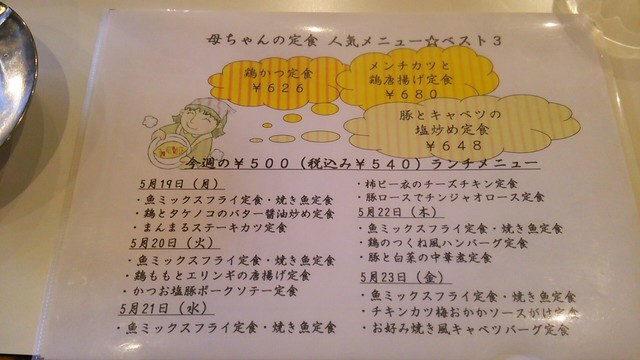 母ちゃんの定食 人気メニュー☆ベスト３
鶏かつ定食
￥６２６
メンチカツと
鶏唐揚げ定食
￥６８０
豚とキャベツの
塩炒め定食
￥６４８
今週の￥５００（税込み￥５４０）ランチメニュー
５月19日（月）
・魚ミックスフライ定食・焼き魚定食
・鶏とタケノコのバター醤油炒め定食
・まんまるステーキカツ定食
５月20日（火）
・魚ミックスフライ定食・焼き魚定食
・鶏ももとエリンギの唐揚げ定食
・かつお塩豚ポークソテー定食
５月21日（水）
・魚ミックスフライ定食・焼き魚定食
・柿ピー衣のチーズチキン定食
・豚ロースでチンジャオロース定食
５月22日（木）
・魚ミックスフライ定食・焼き魚定食
・鶏のつくね風ハンバーグ定食
・豚と白菜の中華煮定食
５月23日（金）
・魚ミックスフライ定食・焼き魚定食
・チキンカツ梅おかかソースがけ定食
・お好み焼き風キャベツバーグ定食